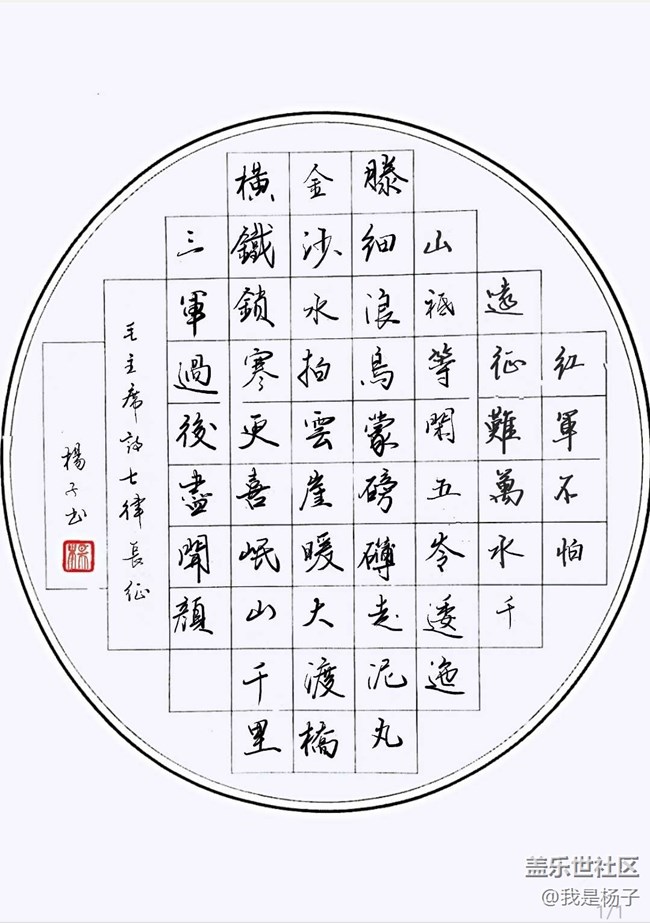 紅軍不怕
遠征難萬水千
山祗等閑五岺逶迤
滕細浪烏蒙磅礴走泥丸
金沙水拍雲崖暖大渡橋
橫鐵鎖寒更喜岷山千里
三軍過後盡開顔
毛主席詩七律長征
楊子书
楊
盖乐世社区
@我是杨子
1/1